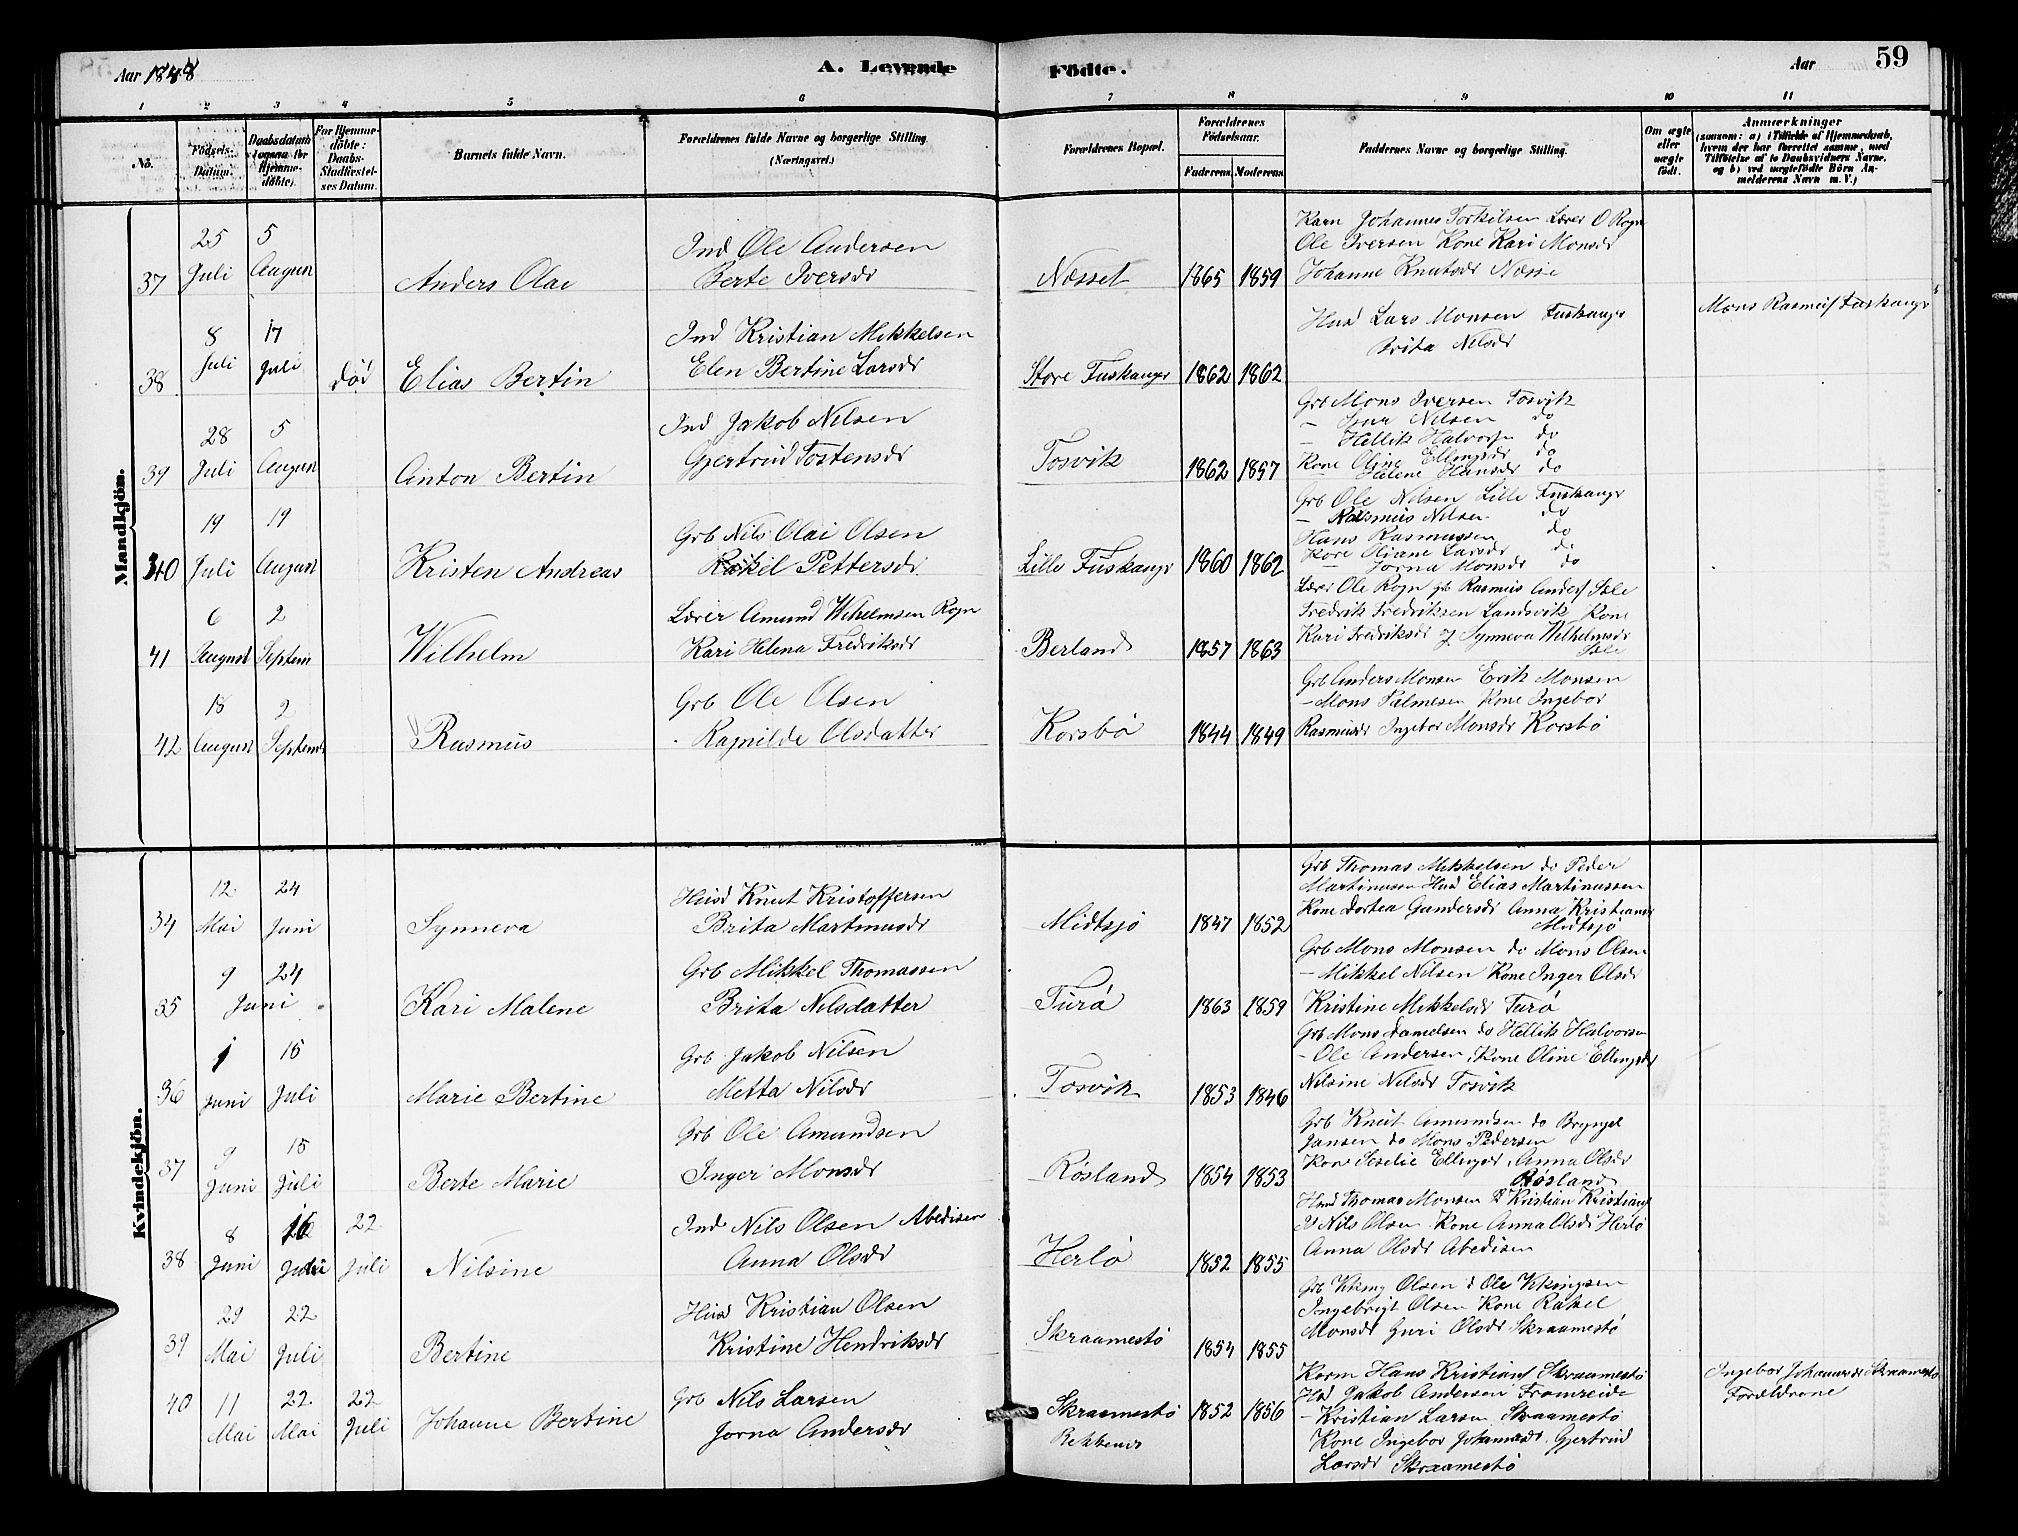 Aar 1888
A. Levende
Födte.
Aar
59
1 2 3 4 5 6 7 8 9 10 11
No.
Födsels-
Datum.
Daabsdatum
(ogsaa for
Hjemme-
døbte).
For Hjemme-
döbte:
Daabs-
Stadfæstel-
ses Datum.
Barnets fulde Navn.
Forældrenes fulde Navne og borgerlige Stilling
(Næringsvei.)
Forældrenes Bopæl.
Forældrenes
Födselsaar.
Faderens Moderens
Faddernes Navne og borgerlige Stilling.
Om ægte
eller
uægte
födt.
Anmærkninger
(saasom: a) i Tilfælde af Hjemmedaab,
hvem der har forrettet samme, med
Tilföielse af to Daabsvidners Navne,
og b) ved uægtefödte Börn An-
melderens Navn m. V.)
Mandkjön.
37
25 Juli
5 August
Anders Olai
Ind Ole Andersen
Berte Iversdr
Næsset
1865 1859
Johannes Torkilsen Lærer O Rogn
Ole Iversen Kone Kari Monsdr
Johanne Knutsdr Næsse
38
8 Juli
17 Juli
död
Elias Bertin
Ind Kristian Mikkelsen
Elen Bertine Larsdr
Store Fuskanger
1862 1862
Husd Lars Monsen Fuskangr
Brita Nilsdr
Mons Rasmus Fuskangr
39
28 Juli
5 August
Anton Bertin
Ind Jakob Nilsen
Gjertrud Tostensdr
Tosvik
1862 1857
Grb Mons Iversen Tosvik
- Nilsen do
- Hellik Halvorsn do
Kone Oline Ellingsdr do
- Helene Hansdr do
40
19 Juli
19 August
Kristen Andreas
Grb Nils Olai Olsen
Rakel Pettersdr
Lille Fuskangr
1860 1862
Grb Ole Nilsen Lille Fuskangr
- Rasmus Nilsen do
Hans Rasmussen do
Kone Oliane Larsdr do
- Jorna Monsdr do
41
6 August
2 Septem
Wilhelm
Lærer Amund Wilhelmsen Rogn
Kari Helena Fredriksdr
Berland
1857 1863
Lærer Ole Rogn grb Rasmus Anders
Fredrik Fredriksen Landsvik Kone
Kari Fredriksdr og Synneva Wilhelmsdr
42
18 August
2 Septembr
Rasmus
Grb Ole Olsen
Ragnilde Olsdatter
Korsbø
1844 1849
Grb Anders Monsen Erik Monsen
- Mons Palmesen Kone Ingebor
Rasmusdr Ingebor Monsdr Korsbø
Kvindekjön.
34
12 Mai
24 Juni
Synneva
Husd Knut Kristoffersen
Brita Martinusdr
Midtsjø
1847 1852
Grb Thomas Mikkelsen do Peder
Martinussen Husd Elias Martinussen
Kone Dortea Gundersdr Anna Kristiansdr
Midtsjø
35
9 Juni
24
Kari Malene
Grb Mikkel Thomassen
Brita Nilsdatter
Turø
1863 1859
Grb Mons Monsen do Mons Olsen
- Mikkel Nilsen Kone Inger Olsdr
Kristine Mikkelsdr Turø
36
1 Juni
15 Juli
Marie Bertine
Grb Jakob Nilsen
Metta Nilsdr
Tosvik
1853 1846
Grb Mons Danielsen do Hellik Halvorsen
- Ole Andersen, Kone Oline Ellingsdr
Nilsine Nilsdr Tosvik
37
9 Juni
15 Juli
Berte Marie
Grb Ole Amundsen
Inger Monsdr
Røsland
1854 1853
Grb Knut Amundsen do Bryngel
Jansen do Mons Pedersen
Kone Seselie Ellingsdr, Anna Olsdr
Røsland
38
8 Juni
16 Juli
22 Juli
Nilsine
Ind Nils Olsen Abedisen
Anna Olsdr
Herlø
1852 1855
Husd Thomas Monsen d Kristian Kristians
d Nils Olsen Kone Anna Olsdr Herlø
Anna Olsdr Abedisen
39
29 Mai
22 Juli
Bertine
Husd Kristian Olsen
Kristine Hendriksdr
Skraamestø
1854 1855
Grb Viking Olsen d Ole Vikingsen
Ingebrigt Olsen Kone Rakel
Monsdr Guri Olsdr Skraamestø
40
11 Mai
22 Mai
22 Juli
Johanne Bertine
Grb Nils Larsen
Jorna Andersdr
Skraamestø
1852 1856
Hans Kristians Skraamestø
Hsd Jakob Andersen Fromreide
- Kristian Larsen Skraamestø
Kone Ingebor Johannsdr. Gjertrud
Larsdr Skraamestø
Ingebor Johannesdr Skraamestø
Forældrene